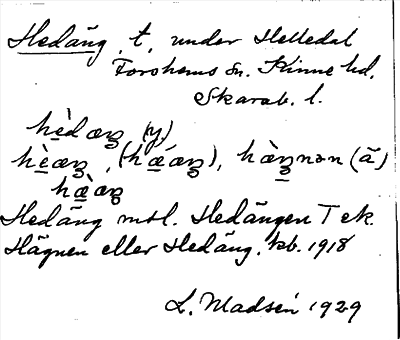 Hedäng, t, under Helledal
Forshems sn. Kinne hd.
Skarab. l.
hèdæŋ (y)
hèæŋ, (hǽæŋ), hæ̀ŋnən (ä)
hæ̀æŋ
Hedäng mtl. Hedängen T ek.
Hägnen eller Hedäng. kb. 1918
L. Madsén 1929